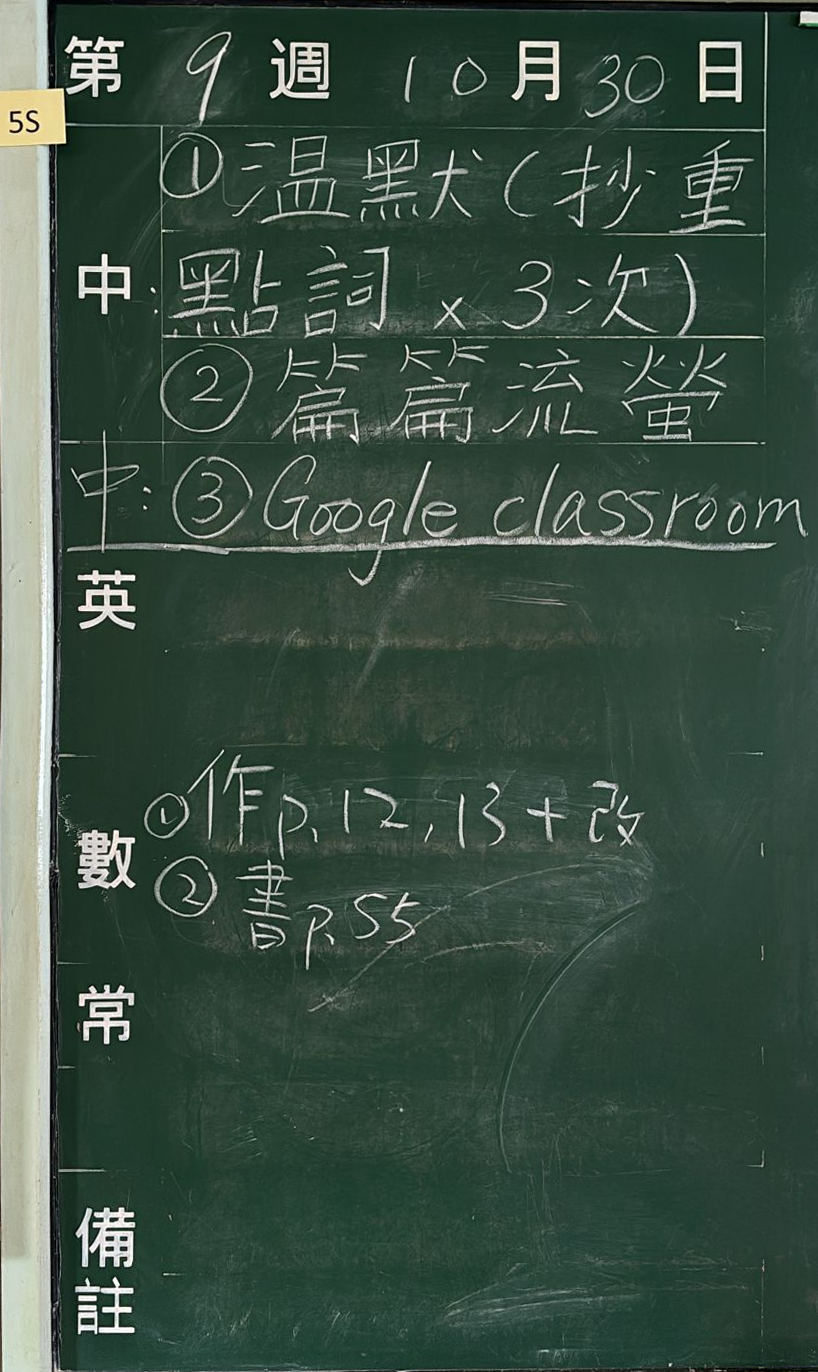 第 9 週 10 月 30 日
5S
①温默(抄重
中:點詞 x 3次)
②篇篇流螢
中:③Google classroom
英
①作p.12,13+改
數
②書p.55
常
備註